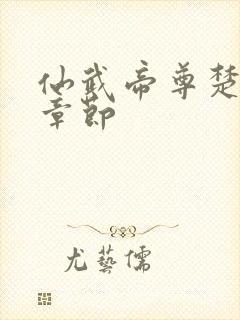 仙武帝尊楚
章節
尤藝儒